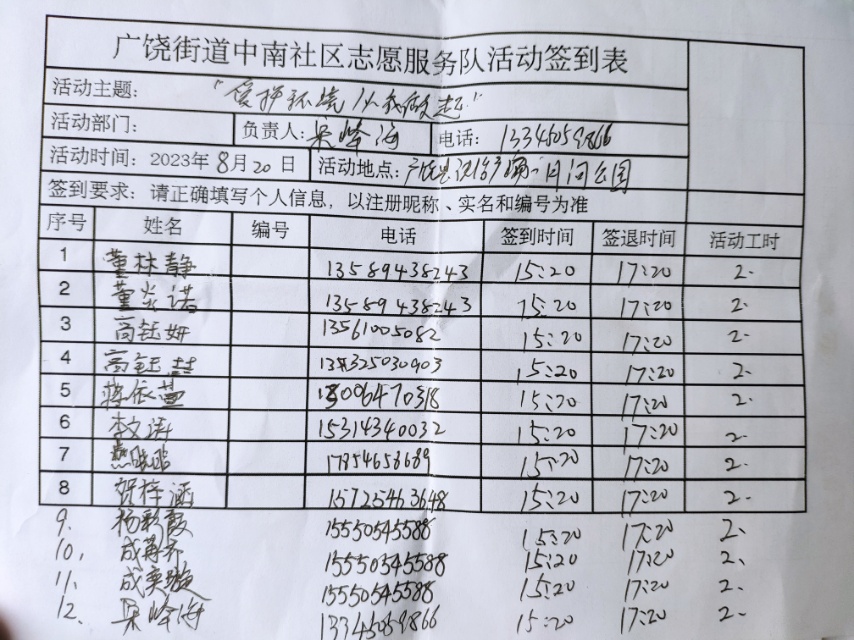 广饶街道中南社区志愿服务队活动签到表
活动主题: "爱护环境 从我做起"
活动部门: 负责人: 梁峰海 电话: 13345059866
活动时间: 2023年8月20日 活动地点: 月河公园
签到要求: 请正确填写个人信息, 以注册昵称、实名和编号为准
序号 姓名 编号 电话 签到时间 签退时间 活动工时
1 董林静 13589438243 15:20 17:20 2.
2 董炎诺 13589438243 15:20 17:20 2.
3 高钰妍 13561005082 15:20 17:20 2.
4 高钰喆 15:20 17:20 2.
5 蒋依萱 13006470318 15:20 17:20 2.
6 李文涛 15314340032 15:20 17:20 2.
7 燕晓 17854658689 15:20 17:20 2.
8 贺梓涵 15725463648 15:20 17:20 2.
9. 杨彩霞 15550545588 15:20 17:20 2.
10. 15550545588 15:20 17:20 2.
11. 成奕璇 15550545588 15:20 17:20 2.
12. 梁峰海 13345059866 15:20 17:20 2.